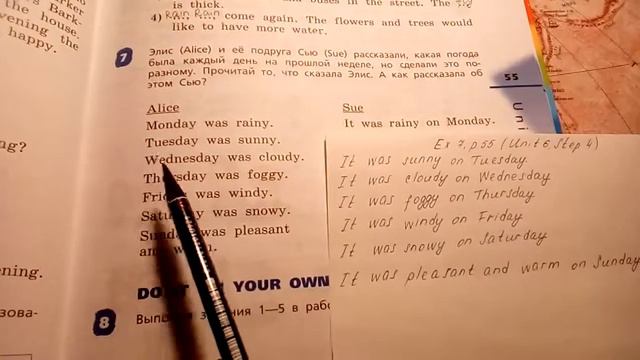 Bark-
the house.
vening the
happy.
ng?
ening.
зова-
is thick.
4) Rain, Rain, come again. The flowers and trees would
like to have more water.
7 Элис (Alice) и её подруга Сью (Sue) рассказали, какая погода
была каждый день на прошлой неделе, но сделали это по-
разному. Прочитай то, что сказала Элис. А как рассказала об
этом Сью?
Alice
Monday was rainy.
Tuesday was sunny.
Wednesday was cloudy.
Thursday was foggy.
was windy.
was snowy.
was pleasant
Sue
It was rainy on Monday.
DO YOUR OWN
8 1—5 в рабо
55
Uni
Ex 7, p 55 (Unit 6, Step 4)
It was sunny on Tuesday
It was cloudy on Wednesday
It was foggy on Thursday
It was windy on Friday
It was snowy on Saturday
It was pleasant and warm on Sunday